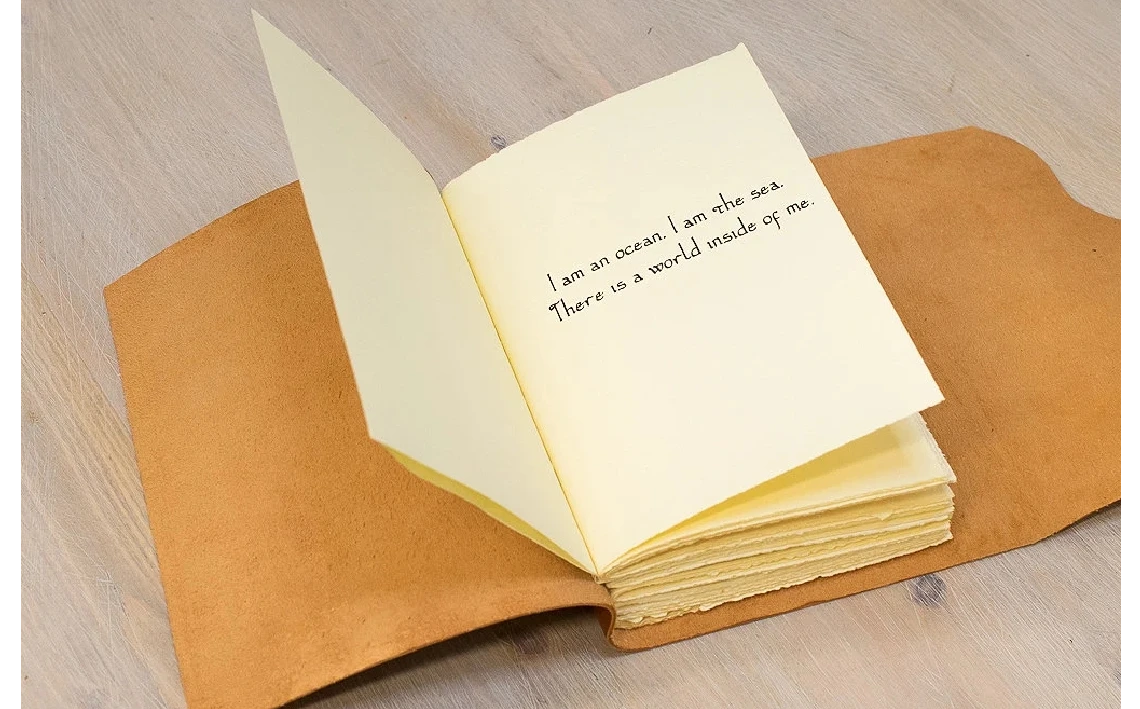 I am an ocean. I am the sea.
There is a world inside of me.